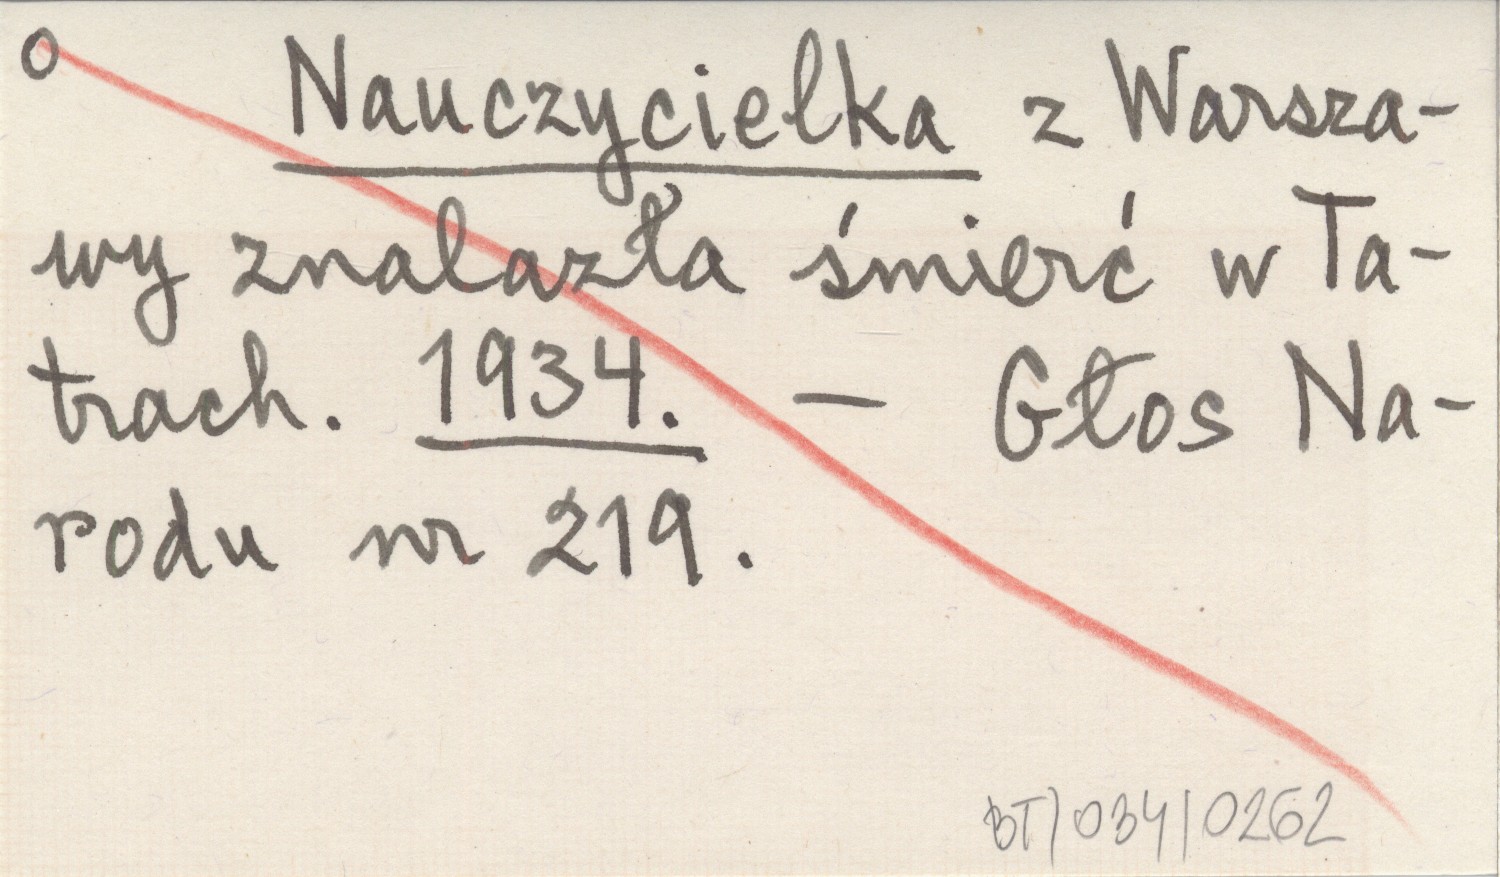 o Nauczycielka z Warsza-
wy znalazła śmierć w Ta-
trach. 1934. — Głos Na-
rodu nr 219.
BT/034/0262